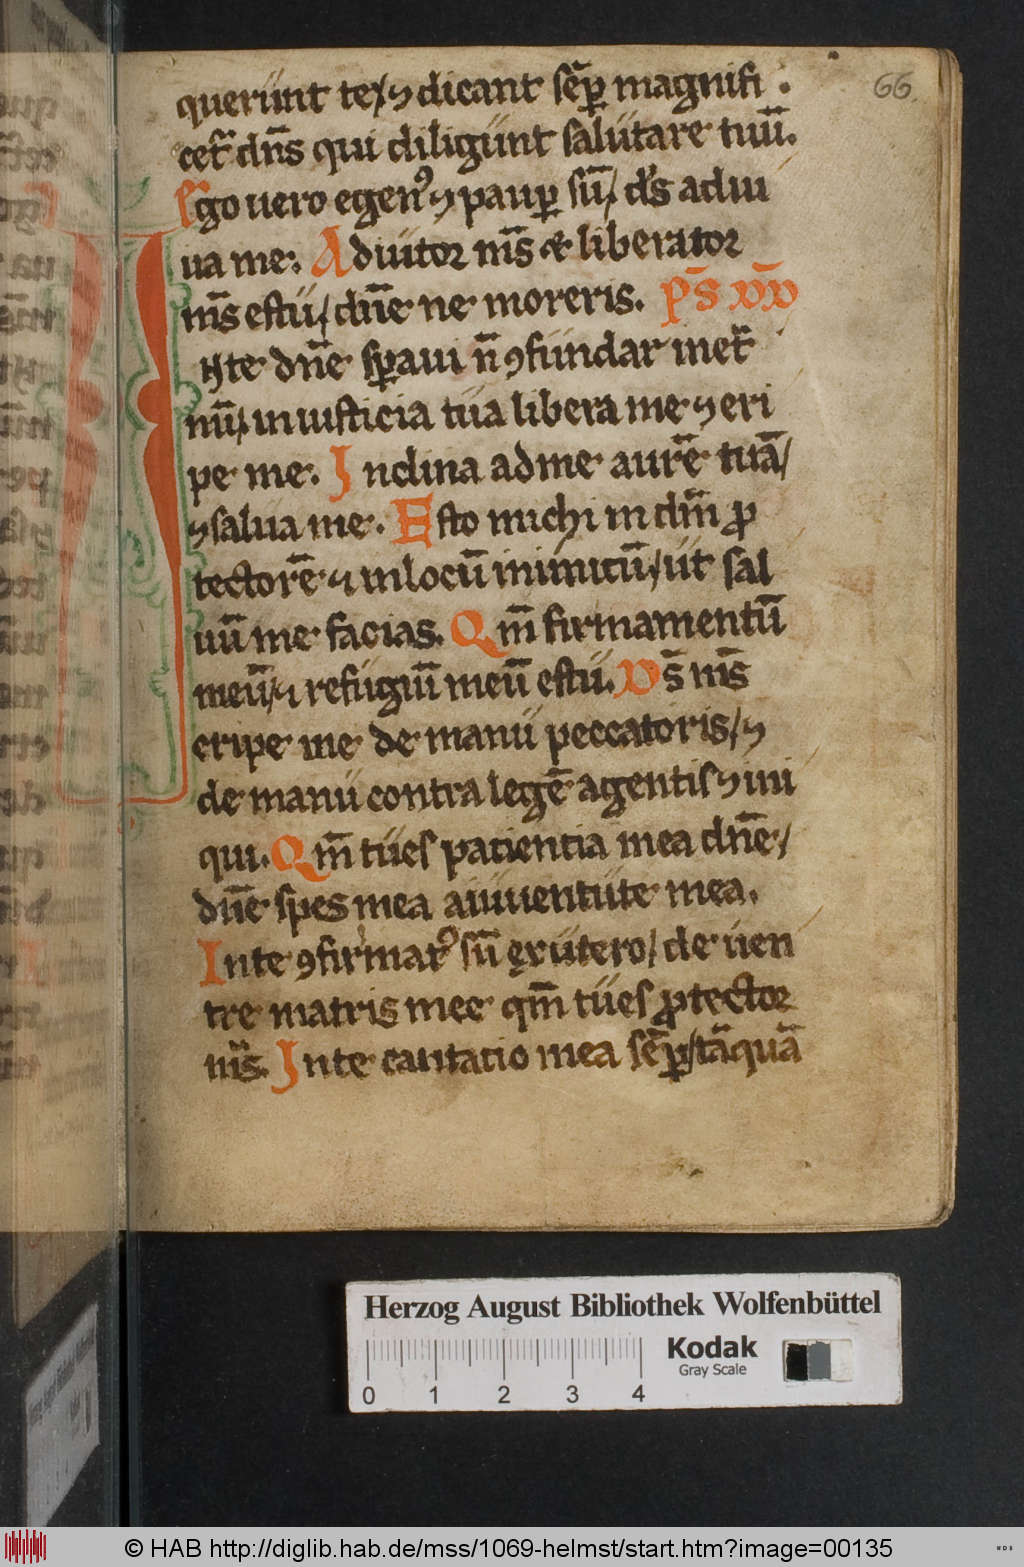 66
querunt te / ⁊ dicant sēp magnifi
cet᷑ dn̄s qui diligunt salutare tuū.
Ego uero egenꝰ ⁊ paup̱ sū / d̄s adiu
ua me. Adiutor m̄s & liberator
m̄s es tu / dn̄e ne moreris. p̄s
INte dn̄e sꝑaui n̄ ꝯfundar in et᷑
nū / in iusticia tua libera me ⁊ eri
pe me. Inclina ad me aurē tuā /
⁊ salua me. Esto michi in dm̄ ꝓ
tectorē ⁊ in locū munitū / ut sal
uū me facias. Qm̄ firmamentū
meū / ⁊ refugiū meū es tu. Ds̄ m̄s
eripe me de manu peccatoris / ⁊
de manu contra legē agentis ⁊ ini
qui. Qm̄ tu es patientia mea dn̄e /
dn̄e spes mea a iuuentute mea.
In te ꝯfirmatꝰ sū ex utero / de uen
tre matris mee qm̄ tu es ꝓtector
m̄s. In te cantatio mea sēꝑ / tāquā
Herzog August Bibliothek Wolfenbüttel
0 1 2 3 4
Kodak
Gray Scale
© HAB http://diglib.hab.de/mss/1069-helmst/start.htm?image=00135